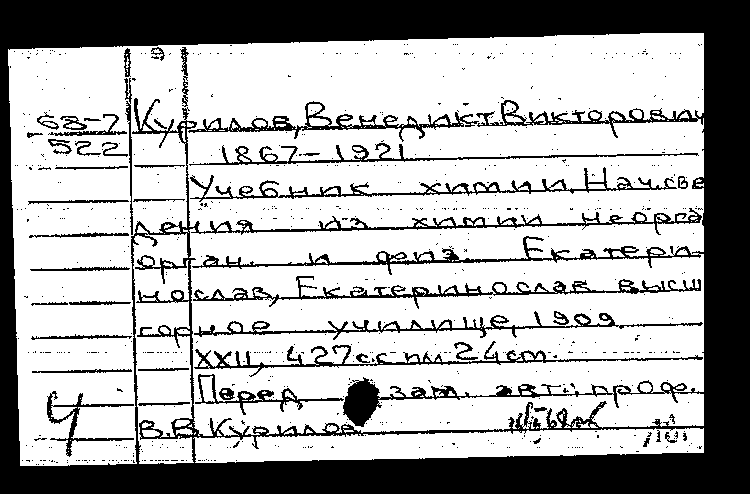 9
68-7 Курилов, Венедикт Викторович
522 1867-1921
Учебник химии. Нач. све
дения из химии неорга
орган. и физ. Екатери-
нослав, Екатеринослав высш
горное училище, 1909.
XXII, 427 с с ил 24 cm.
Перед зат. авт.: проф.
Ч В.В. Курилов